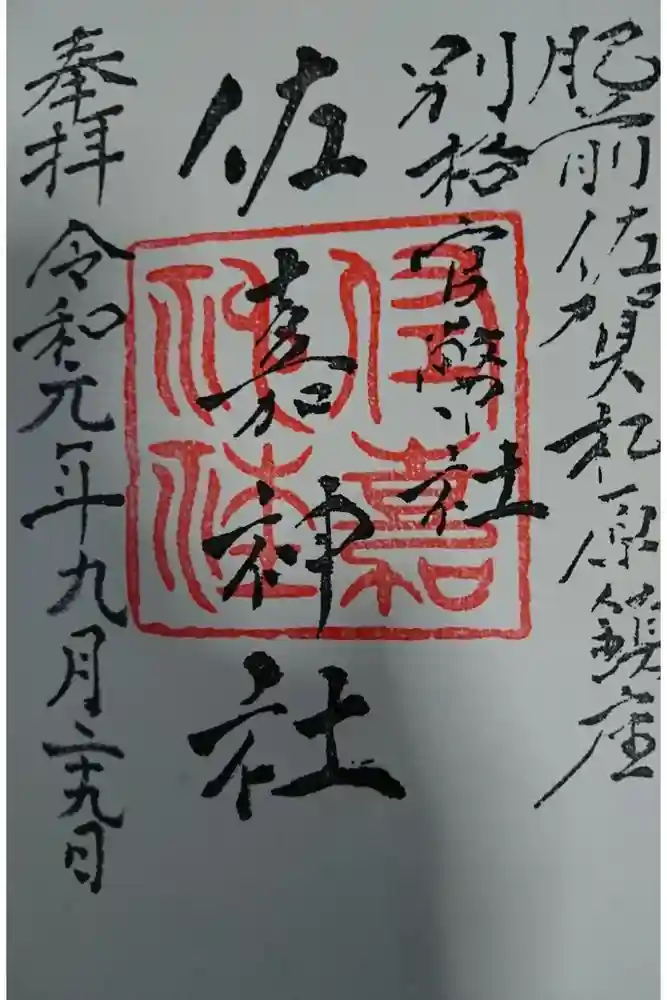 肥前佐賀松原鎮座
別格官幣社
佐嘉神社
佐嘉神社
奉拝 令和元年九月二十九日